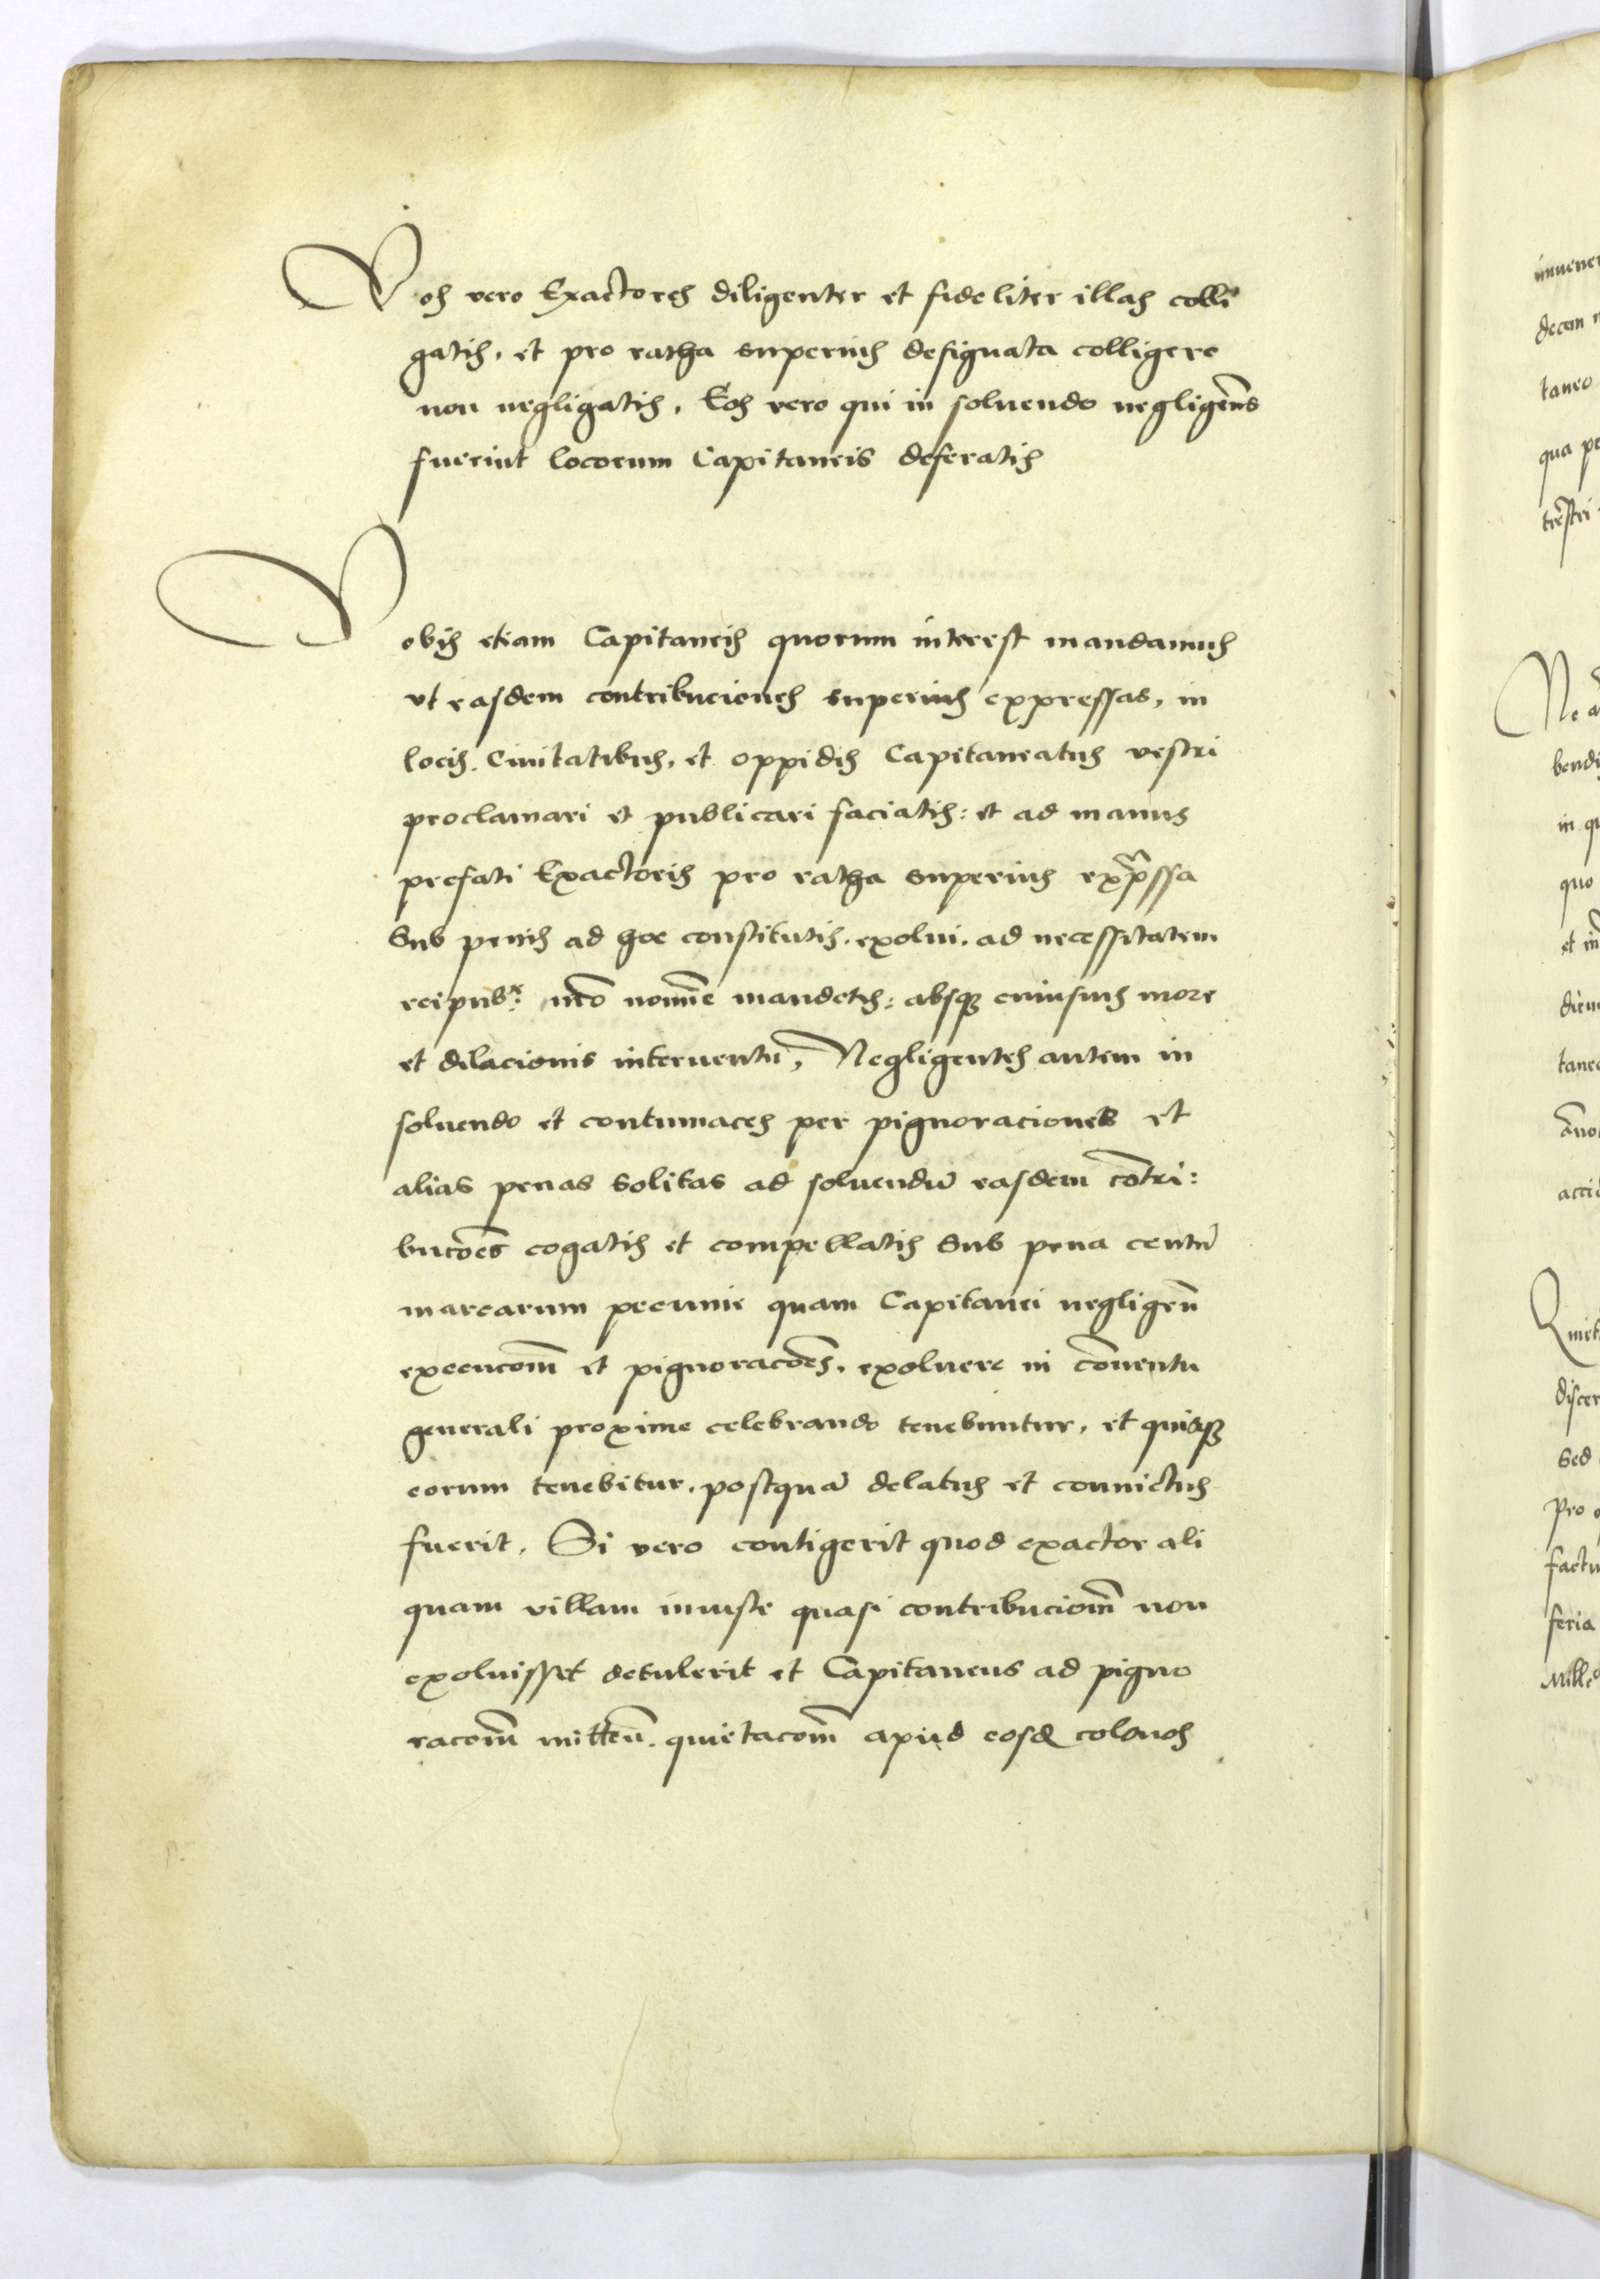 Vos vero Exactores diligenter et fideliter illas colli
gatis, et pro ratha superius designata colligere
non negligatis, Eos vero qui in soluendo negligen̄s
fuerint locorum Capitaneis deferatis
Vobis etiam Capitaneis quorum interest mandamus
vt easdem contribuciones superius expressas, in
locis. Ciuitatibus, et oppidis Capitaneatus vestri
proclamari et publicari faciatis: et ad manus
prefati Exactoris pro ratha superius exp̄ssa
Sub penis ad hoc constitutis. exolui. ad necessitatem
reipub: nr̄o nomīe mandetis: absqꝫ cuiusuis more
et dilacionis interuentu, Negligentes autem in
soluendo et contumaces per pignoraciones et
alias penas solitas ad soluendū easdem cōtri:
buc̄oes cogatis et compellatis Sub pena centū
marcarum pecunie quam Capitanei negligen̄
execuc̄om̄ et pignorac̄oes, exoluere in cōuentu
generali proxime celebrando tenebuntur, et quisqꝫ
eorum tenebitur. postquā delatus et conuictus
fuerit, Si vero contigerit quod exactor ali
quam villam iniuste quasi contribuciom̄ non
exoluisset detulerit et Capitaneus ad pigno
racom̄ mitten̄. quietacom̄ apud eosd colonos
inuener
decem
taneo
qua pe
trēstri
Ne a
bendi
in qu
quo
et
dicu
tane
accid
Quiet
discer
Sed
Pro
factu
feria
Mille